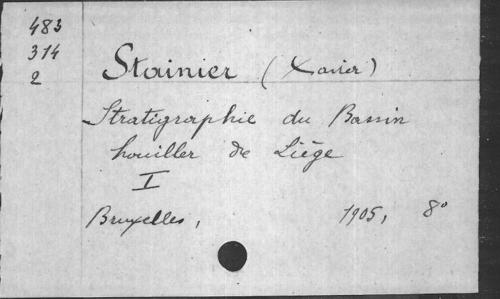 483
314
2
Stainier (Xavier)
Stratigraphie du Bassin
houiller de Liège
I
Bruxelles, 1905, 8°